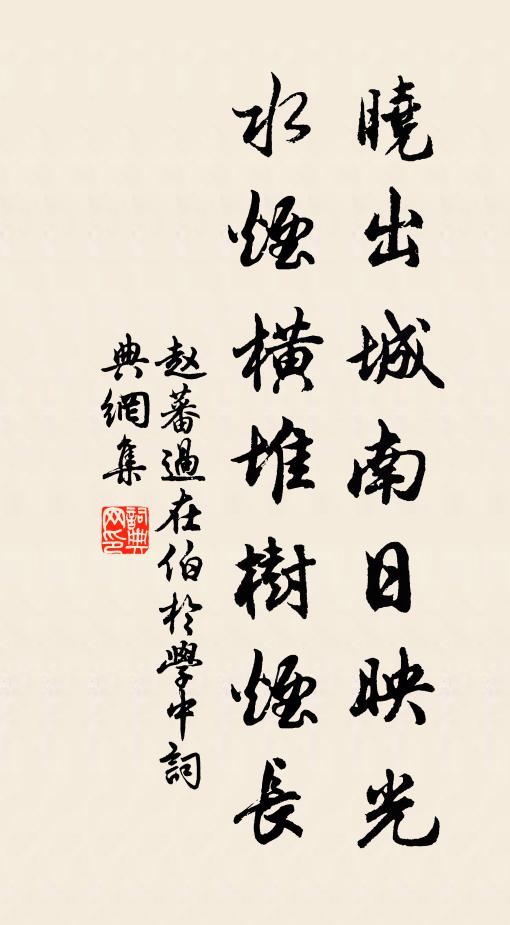 曉出城南日映光
水煙橫堆樹煙長
赵蕃過在伯於學中詞
典網集
詞典網印